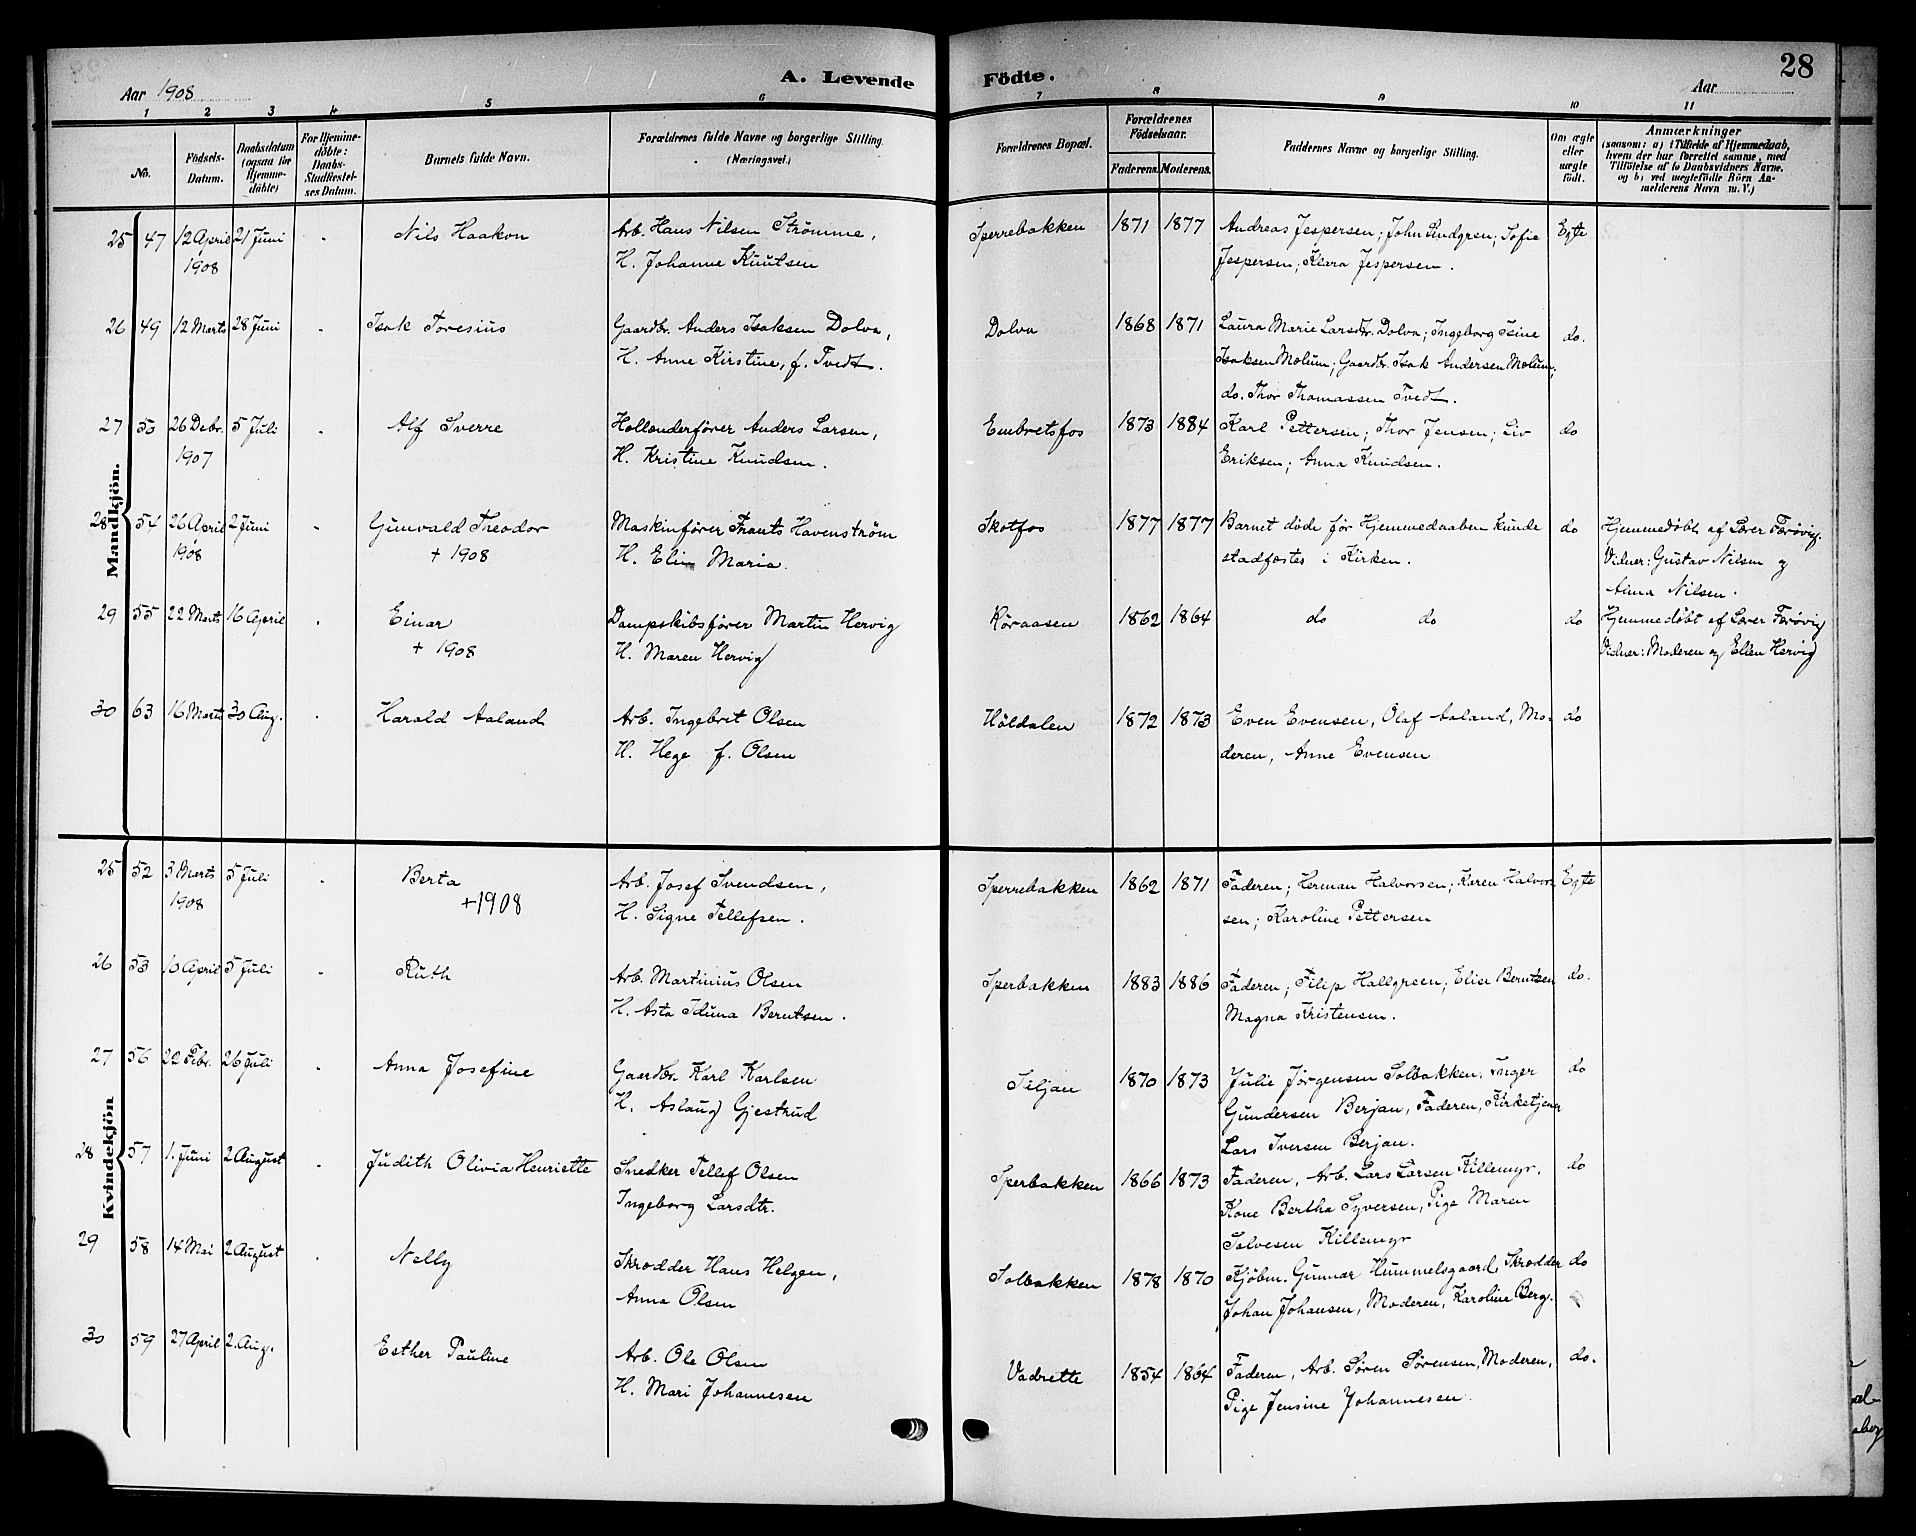 28
Aar 1908
A. Levende Födte.
Aar
1 2 3 4 5 6 7 8 9 10 11
No.
Födsels-
Datum.
Daabsdatum
(ogsaa for
Hjemme-
döbte)
For Hjemme-
döbte:
Daabs-
Stadfæstel-
ses Datum.
Barnets fulde Navn.
Forældrenes fulde Navne og borgerlige Stilling.
(Næringsvei.)
Forældrenes Bopæl.
Forældrenes
Födselsaar.
Faderens. Moderens.
Faddernes Navne og borgerlige Stilling.
Om ægte
eller
uægte
födt.
Anmærkninger
(saasom: a) i Tilfælde af Hjemmedaab,
hvem der har forrettet samme, med
Tilföielse af to Daabsvidners Navne,
og b) ved uægtefödte Börn An-
melderens Navn m. V.)
Mandkjön.
25 47 12 April 21 Juni Nils Haakon Arb. Hans Nilsen Strømme, Sperrebakken 1871 1877 Andreas Jespersen; John Lindgren; Sofie Egte
1908 H. Johanne Knutsen Jespersen; Klara Jespersen.
26 49 12 Marts 28 Juni Isak Toresius Gaardbr. Anders Isaksen Dolva, Dolva 1868 1871 Laura Marie Larsdtr. Dolva; Ingeborg Tsine do.
H. Anne Kirstine, f. Tvedt. Isaksen Mælum; Gaardbr. Isak Andersen Mælum;
do. Thor Thomassen Tvedt.
27 50 26 Debr. 5 Juli Alf Sverre Hollænderfører Anders Larsen, Embretsfos 1873 1884 Karl Pettersen; Thor Jensen; Liv do
1907 H. Kristine Knudsen. Eriksen; Anna Knudsen.
28 54 26 April 2 Juni Gunvald Theodor Maskinfører Frants Havenstrøm Skotfos 1877 1877 Barnet døde før Hjemmedaaben kunde do Hjemmedøbt af Lærer Færøvig.
1908 + 1908 H. Elin Maria. stadfæstes i Kirken. Vidner: Gustav Nilsen og
Anna Nilsen.
29 55 22 Marts 16 April Einar Dampskibsfører Martin Hervig Køraasen 1862 1864 do do do Hjemmedøbt af Lærer Færøvig
+ 1908 H. Maren Hervig Vidner: Moderen og Ellen Hervig
30 63 16 Marts 30 Aug. Harald Aaland Arb. Ingebret Olsen Höldalen 1872 1873 Even Evensen, Olaf Aaland, Mo- do
H. Hege f. Olsen deren, Anne Evensen
Kvindekjön
25 52 3 Marts 5 Juli Berta Arb. Josef Svendsen, Sperrebakken 1862 1871 Faderen; Herman Halvorsen; Karen Halvor- Egte
1908 +1908 H. Signe Tellefsen. sen; Karoline Pettersen
26 53 10 April 5 Juli Ruth Arb. Martinius Olsen Sperbakken 1883 1886 Faderen; Filip Hallgreen; Elise Berntsen do.
H. Asta Iduna Berntsen. Magna Kristensen.
27 56 22 Febr. 26 Juli Anna Josefine Gaardbr. Karl Karlsen Siljan 1870 1873 Julie Jørgensen Solbakken, Inger do
H. Aslaug Gjestrud Gundersen Berjan, Faderen, Kirketjener
Lars Iversen Berjan.
28 57 1. Juni 2 August Judith Olivia Henriette Snedker Tellef Olsen Sperbakken 1866 1873 Faderen, Arb. Lars Larsen Killemyr, do
Ingeborg Larsdtr. Kone Bertha Syversen, Pige Maren
Solvesen Killemyr
29 58 14 Mai 2 August Nelly Skrædder Hans Helgen, Solbakken 1878 1870 Kjøbm. Gunnar Hummelsgaard, Skrædder do
Anna Olsen Johan Johansen, Moderen, Karoline Berg.
30 59 27 April 2. Aug. Esther Pauline Arb. Ole Olsen Vadrette 1854 1864 Faderen, Arb. Søren Sørensen, Moderen, do.
H. Mari Johannesen Pige Jensine Johannesen.